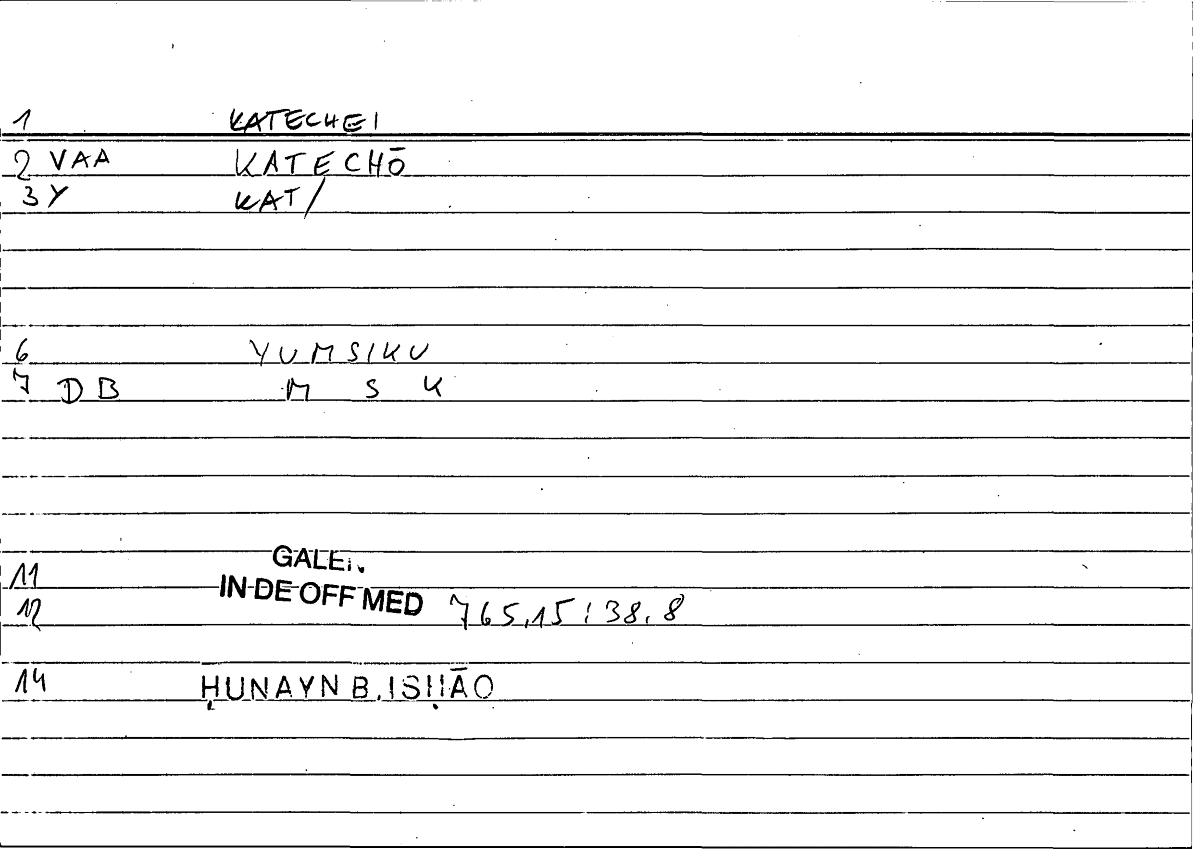 1 KATECHEI
2 VAA KATECHŌ
3 Y KAT/
6 YUMSIKU
7 DB M S K
11 GALEN
12 IN DE OFF MED 765,15 : 38,8
14 ḤUNAYN B. ISḤĀQ